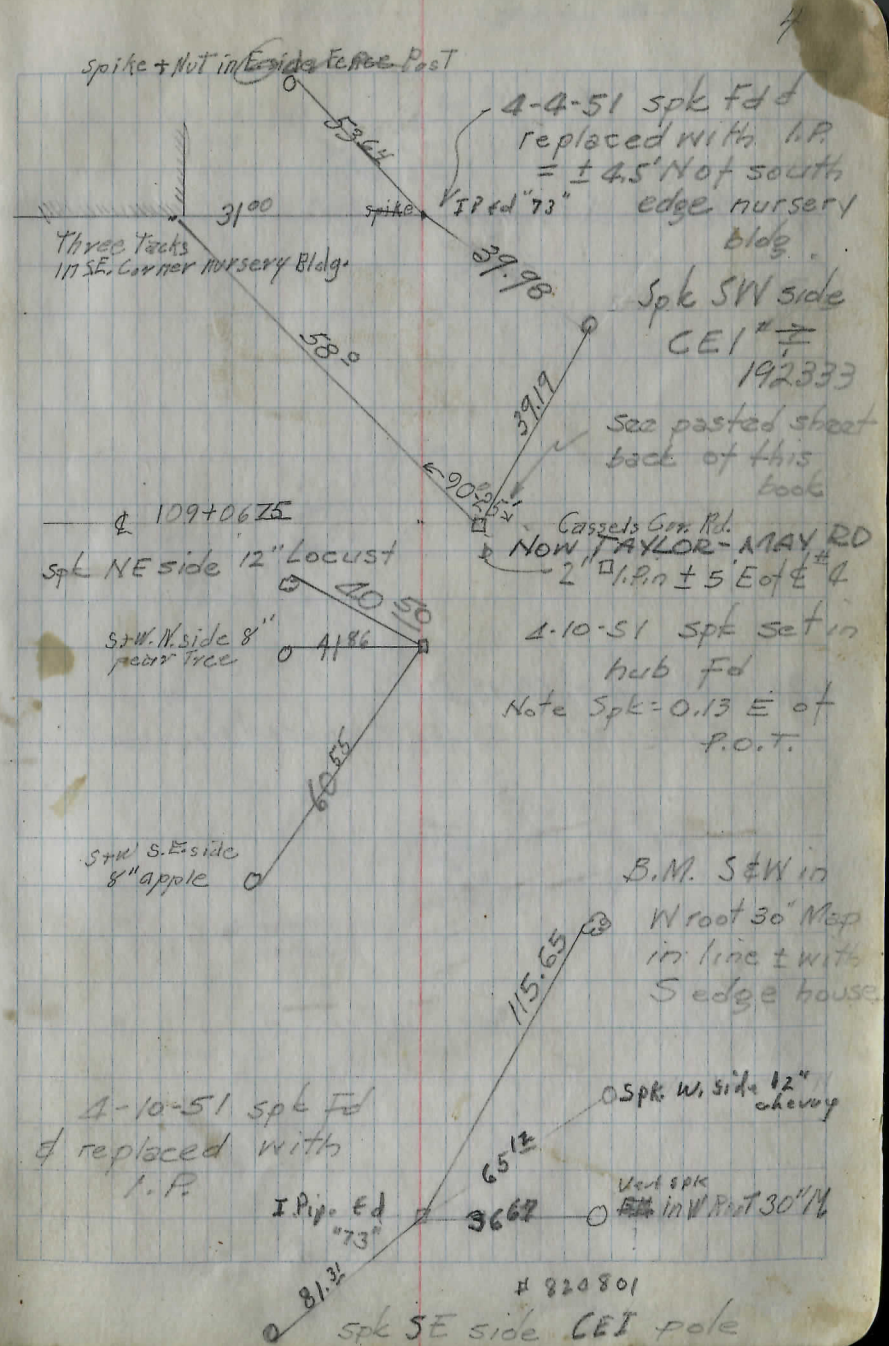 4
Spike + Nut in E side Fence Post
53 64
4-4-51 spk Fd &
replaced with I.P.
= ± 4.5' N of south
edge nursery
bldg.
31 00
spike
I P Fd "73"
Three Tacks
in SE. Corner nursery Bldg.
39.98
Spk SW side
CEI #
192333
58 0
39.19
See pasted sheet
back of this
book
90° 25'
℄ 109+06 75
Cassels Cor. Rd.
NOW TAYLOR-MAY RD
2" □ I.Pin ± 5' E of ℄
Spk NE side 12" Locust
40 50
S+W. N. side 8"
pear Tree
41 86
4-10-51 spk set in
hub Fd
Note Spk = 0.13 E of
P.O.T.
60 55
S+W S.E. side
8" apple
B.M. S & W in
W root 30" Map
in line ± with
S edge house
115.65
4-10-51 spk Fd
& replaced with
I.P.
Spk W. side 12"
cherry
65 12
I Pip. Fd
"73"
36 67
Vert spk
in W Root 30" M
81.31
# 820801
spk SE side CEI pole